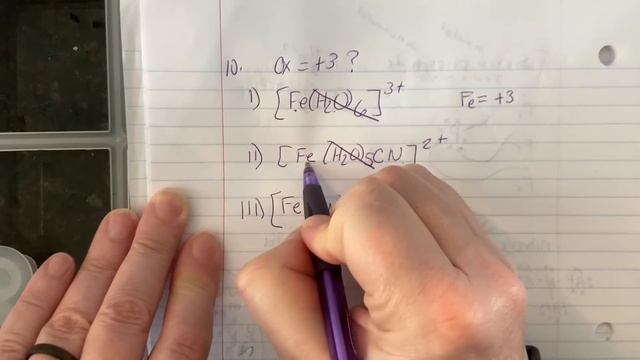 10. Ox = +3 ?
I) [Fe(H₂O)₆]³⁺ Fe = +3
II) [Fe(H₂O)₅CN]²⁺
III) [Fe